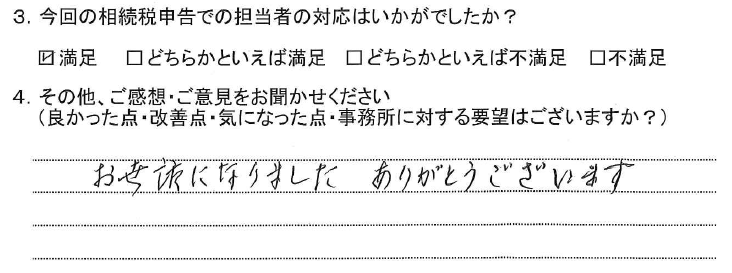 3. 今回の相続税申告での担当者の対応はいかがでしたか？
☑満足 □どちらかといえば満足 □どちらかといえば不満足 □不満足
4. その他、ご感想・ご意見をお聞かせください
（良かった点・改善点・気になった点・事務所に対する要望はございますか？）
お世話になりました ありがとうございます